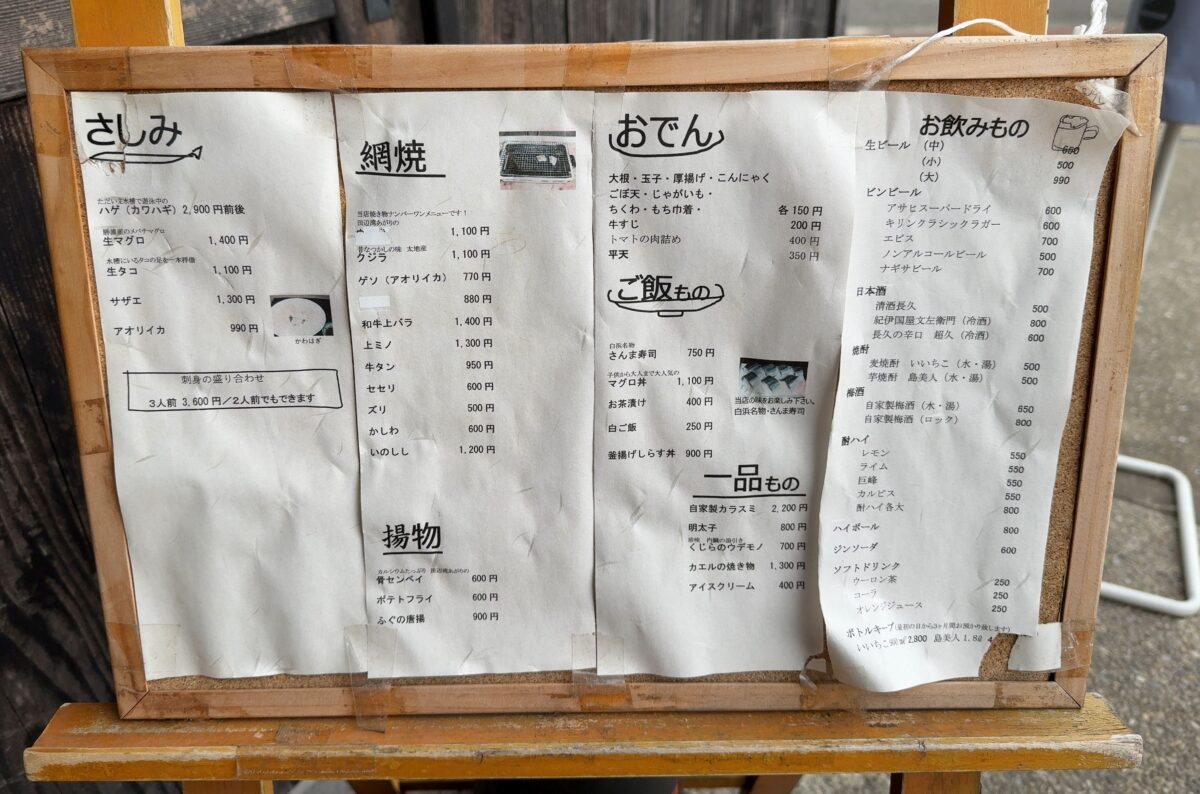 さしみ
ただいま水槽で遊泳中の
ハゲ（カワハギ）2,900円前後
勝浦産のメバチマグロ
生マグロ 1,400円
水槽にいるタコの足を一本丼個
生タコ 1,100円
サザエ 1,300円
アオリイカ 990円
かわはぎ
刺身の盛り合わせ
3人前 3,600円／2人前でもできます
網焼
当店焼き物ナンバーワンメニューです！
田辺湾あがりの
1,100円
昔なつかしの味 太地産
クジラ 1,100円
ゲソ（アオリイカ） 770円
880円
和牛上バラ 1,400円
上ミノ 1,300円
牛タン 950円
セセリ 600円
ズリ 500円
かしわ 600円
いのしし 1,200円
揚物
カルシウムたっぷり 田辺湾あがりの
骨センベイ 600円
ポテトフライ 600円
ふぐの唐揚 900円
おでん
大根・玉子・厚揚げ・こんにゃく
ごぼ天・じゃがいも・
ちくわ・もち巾着・ 各150円
牛すじ 200円
トマトの肉詰め 400円
平天 350円
ご飯もの
白浜名物
さんま寿司 750円
子供から大人まで大人気の
マグロ丼 1,100円
お茶漬け 400円
白ご飯 250円
釜揚げしらす丼 900円
当店の味をお楽しみ下さい。
白浜名物・さんま寿司
一品もの
自家製カラスミ 2,200円
明太子 800円
珍味 内臓の湯引き
くじらのウデモノ 700円
カエルの焼き物 1,300円
アイスクリーム 400円
お飲みもの
生ビール （中） 650
（小） 500
（大） 990
ビンビール
アサヒスーパードライ 600
キリンクラシックラガー 600
エビス 700
ノンアルコールビール 500
ナギサビール 700
日本酒
清酒長久 500
紀伊国屋文左衛門（冷酒） 800
長久の辛口 超久（冷酒） 600
焼酎
麦焼酎 いいちこ（水・湯） 500
芋焼酎 島美人（水・湯） 500
梅酒
自家製梅酒（水・湯） 650
自家製梅酒（ロック） 800
酎ハイ
レモン 550
ライム 550
巨峰 550
カルピス 550
酎ハイ各大 800
ハイボール 800
ジンソーダ 600
ソフトドリンク
ウーロン茶 250
コーラ 250
オレンジジュース 250
ボトルキープ(最初の日から3ヶ月間お預かり致します)
いいちこ 2,800 島美人1.8ℓ 4